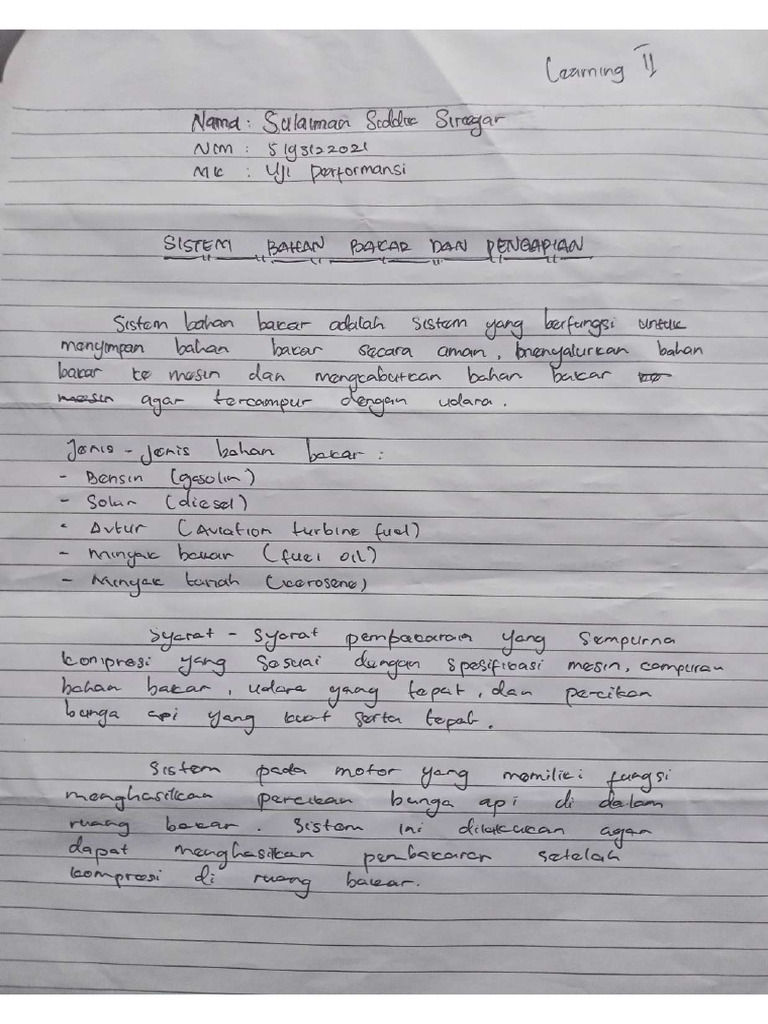 Learning II
Nama : Sulaiman Siddiq Siregar
NIM : 5193122021
MK : Uji Performansi
SISTEM BAHAN BAKAR DAN PENGAPIAN
Sistem bahan bakar adalah sistem yang berfungsi untuk
menyimpan bahan bakar secara aman, menyalurkan bahan
bakar ke mesin dan mengkabutkan bahan bakar ke
mesin agar tercampur dengan udara.
Jenis - jenis bahan bakar :
- Bensin (gasolin)
- Solar (diesel)
- Avtur (Aviation turbine fuel)
- Minyak bakar (fuel oil)
- Minyak tanah (kerosene)
Syarat - syarat pembakaran yang sempurna
kompresi yang sesuai dengan spesifikasi mesin, campuran
bahan bakar, udara yang tepat, dan percikan
bunga api yang kuat serta tepat.
Sistem pada motor yang memiliki fungsi
menghasilkan percikan bunga api di dalam
ruang bakar. Sistem ini dilakukan agar
dapat menghasilkan pembakaran setelah
kompresi di ruang bakar.